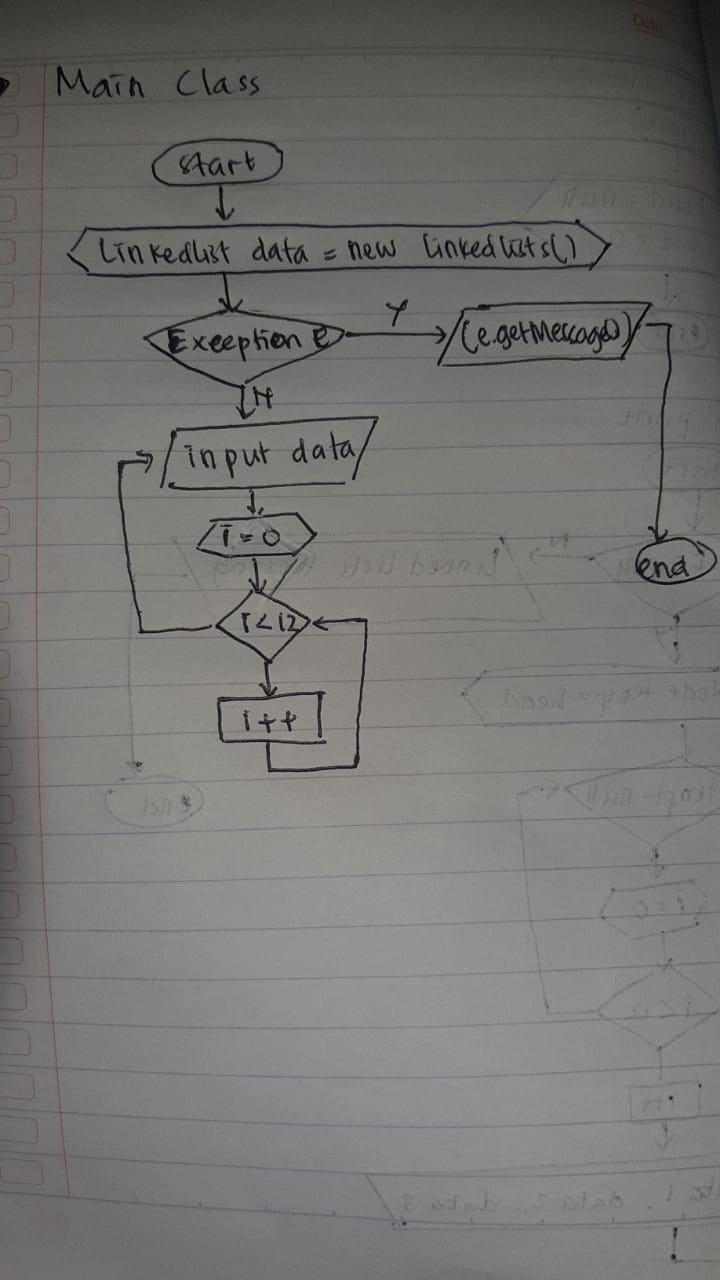 Main Class
start
LinkedList data = new Linkedlists()
Exeeption e
Y
(e.getMessage())
N
input data
i = 0
end
i < 12
i++